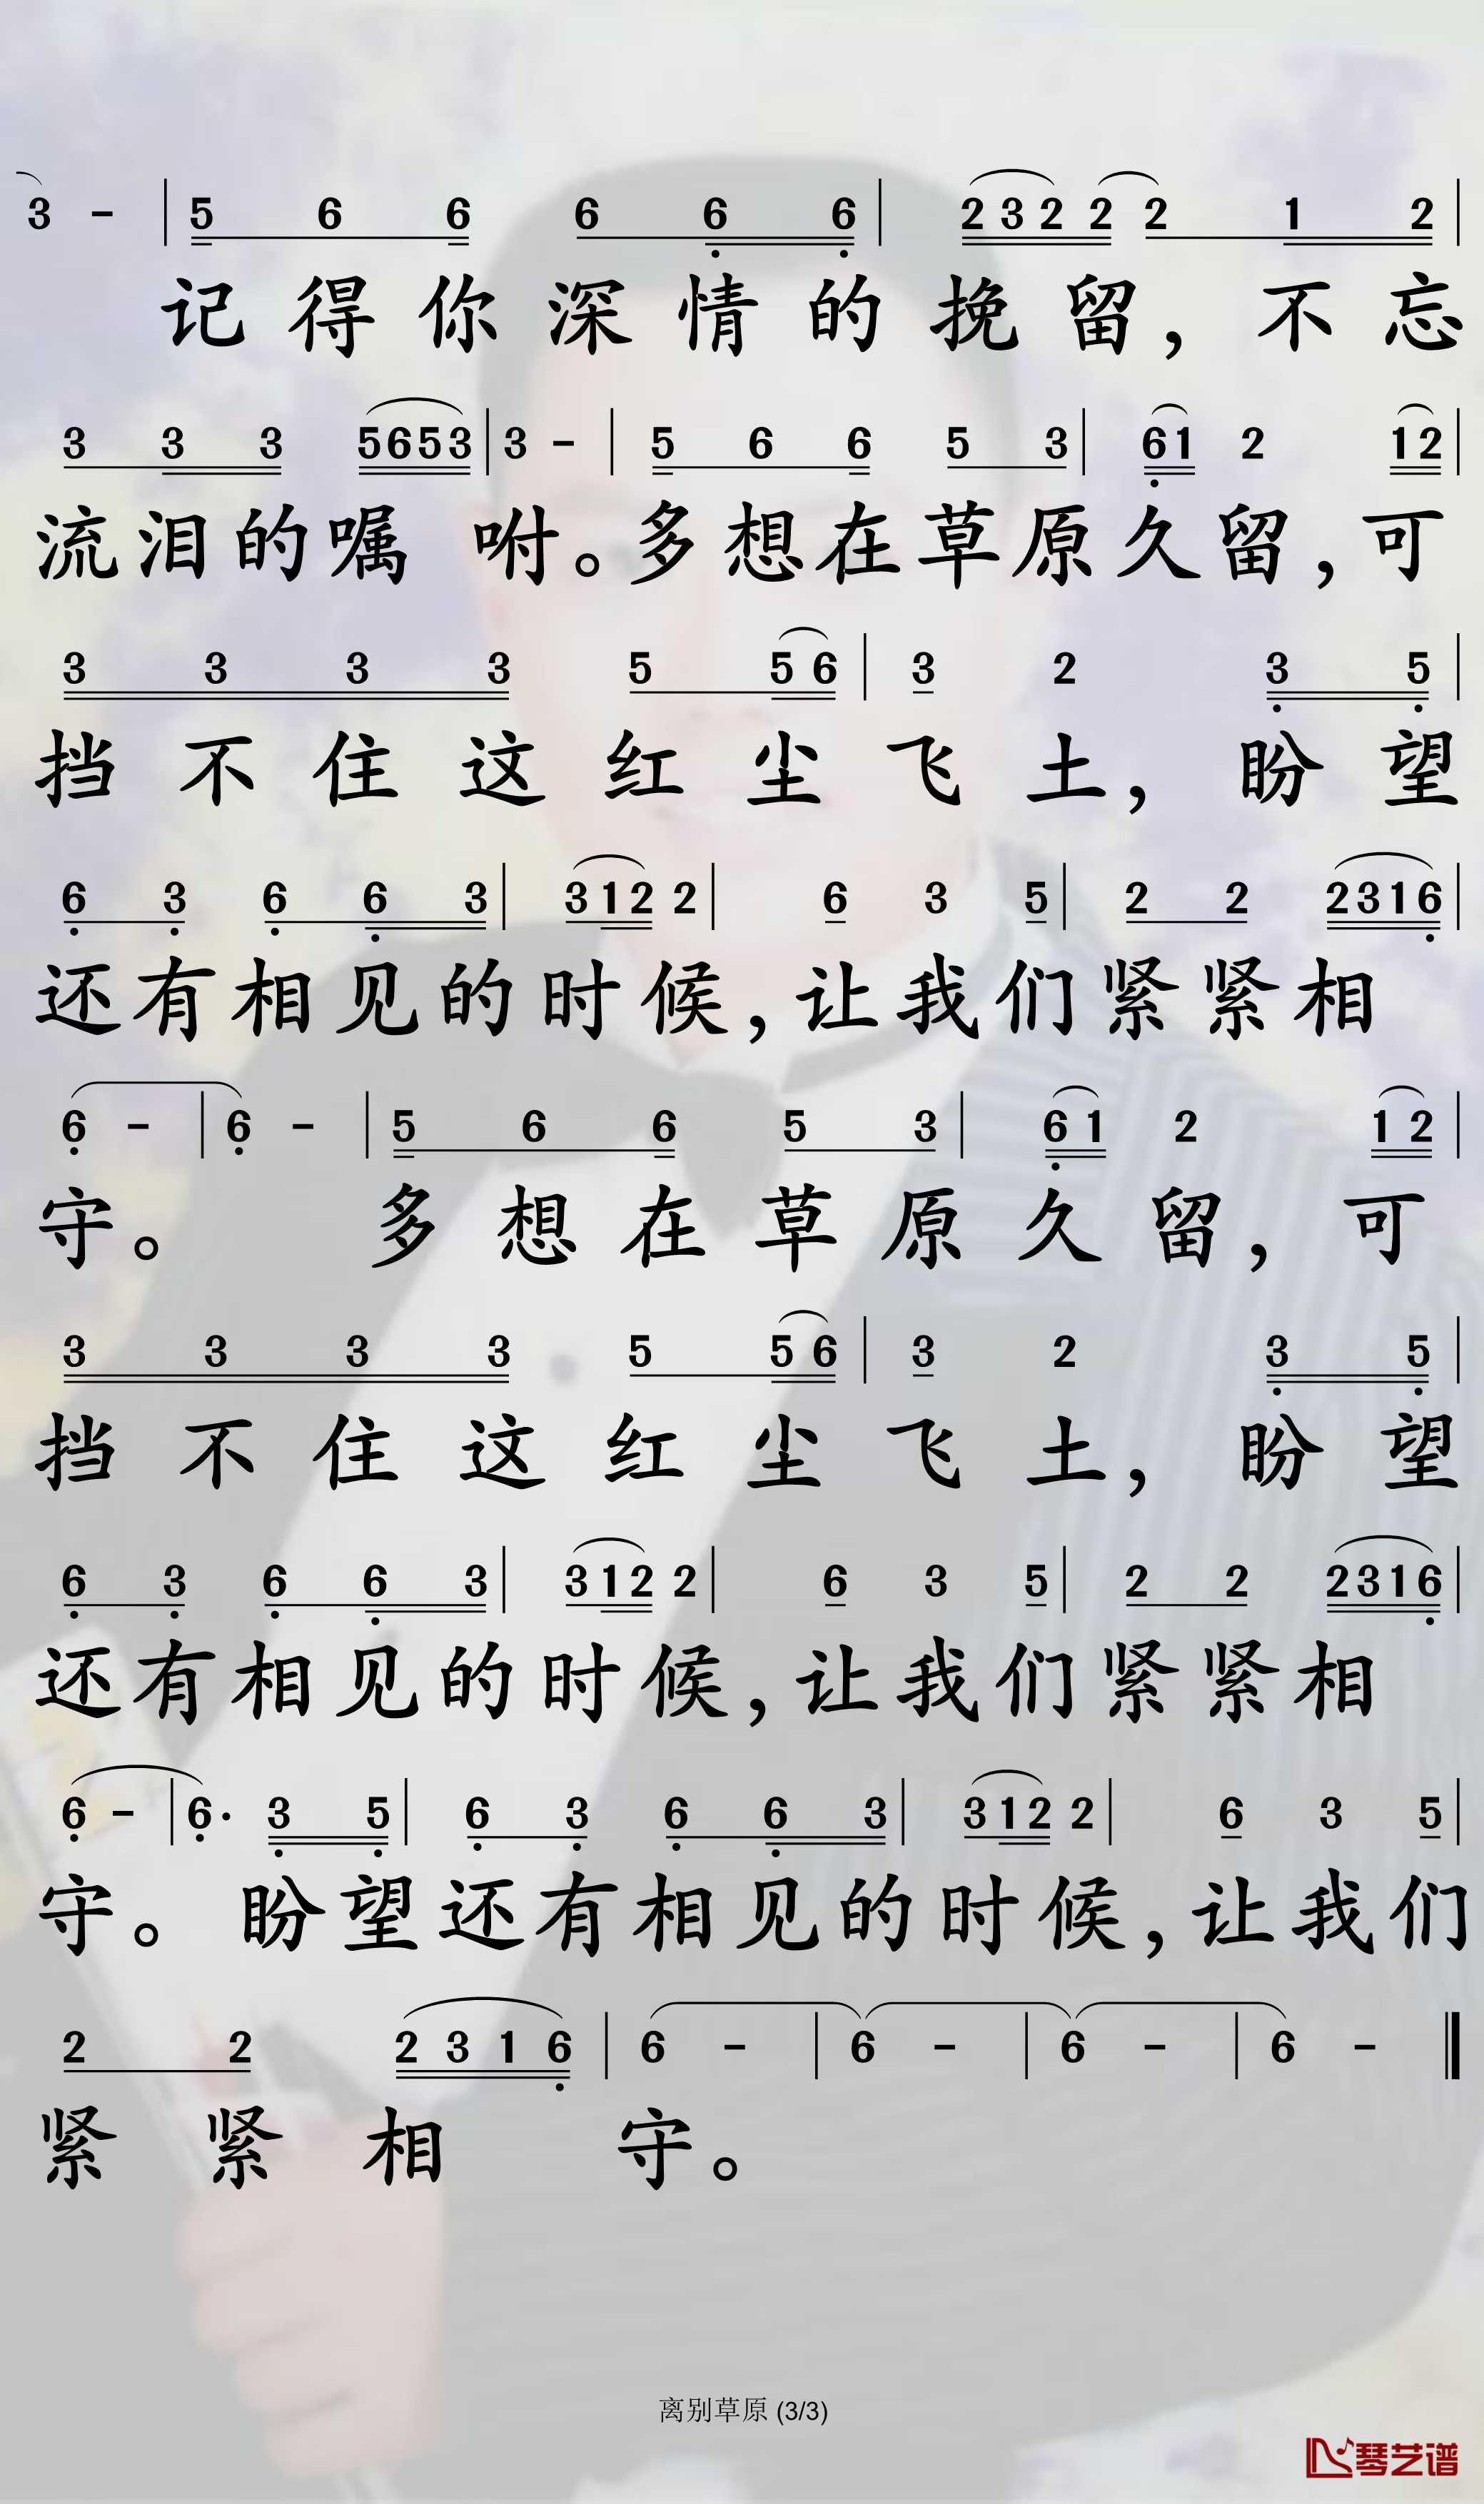 3 - | 5 6 6 6 6 6 | 2 3 2 2 2 1 2 |
记得你深情的挽留，不忘
3 3 3 5653 | 3 - | 5 6 6 5 3 | 61 2 12 |
流泪的嘱咐。多想在草原久留，可
3 3 3 3 5 5 6 | 3 2 3 5 |
挡不住这红尘飞土，盼望
6 3 6 6 3 | 312 2 | 6 3 5 | 2 2 2316 |
还有相见的时候，让我们紧紧相
6 - | 6 - | 5 6 6 5 3 | 6 1 2 1 2 |
守。多想在草原久留，可
3 3 3 3 5 5 6 | 3 2 3 5 |
挡不住这红尘飞土，盼望
6 3 6 6 3 | 312 2 | 6 3 5 | 2 2 2316 |
还有相见的时候，让我们紧紧相
6 - | 6· 3 5 | 6 3 6 6 3 | 312 2 | 6 3 5 |
守。盼望还有相见的时候，让我们
2 2 2 3 1 6 | 6 - | 6 - | 6 - | 6 - ‖
紧紧相守。
离别草原 (3/3)
琴艺谱